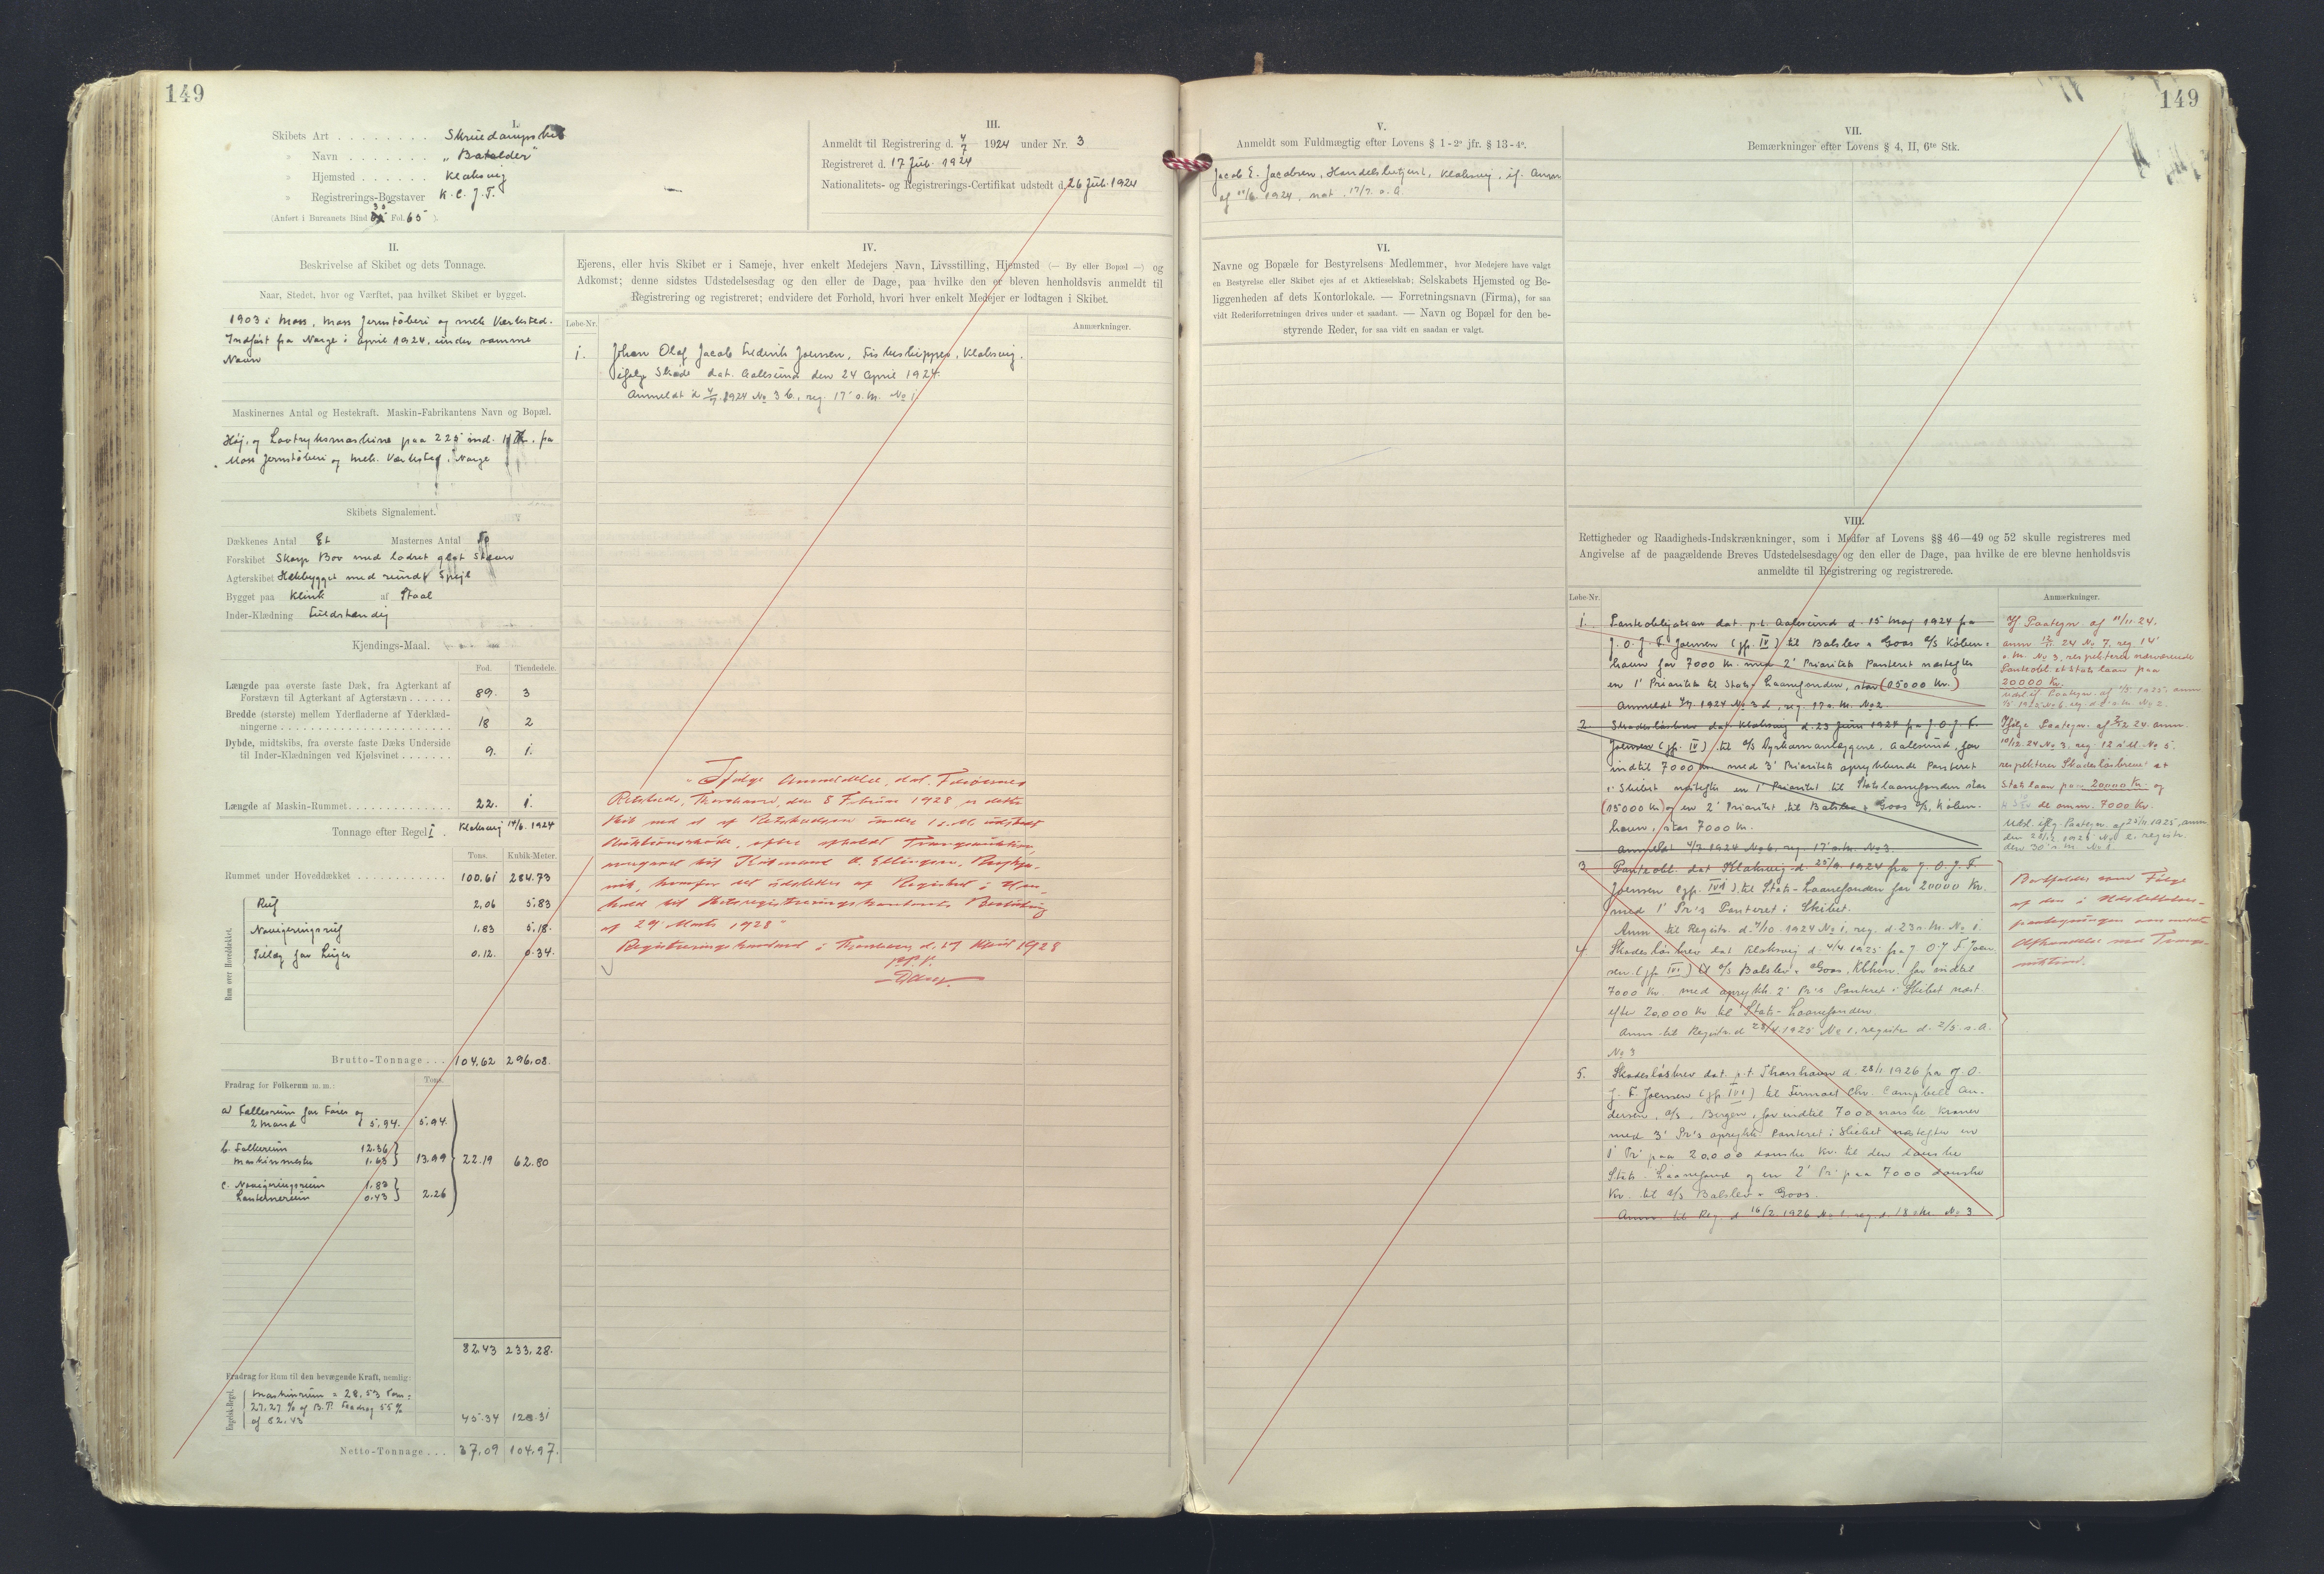 149
I.
Skibets Art . . . . . . . . Skruedampskib
» Navn . . . . . . . „Batalder"
» Hjemsted . . . . . . Klaksvig
» Registrerings-Bogstaver K. C. J. T.
(Anført i Bureauets Bind Fol. 65 ).
III.
Anmeldt til Registrering d. 4/7 1924 under Nr. 3
Registreret d. 17 Juli 1924
Nationalitets- og Registrerings-Certifikat udstedt d. 26 Juli 1924
II.
Beskrivelse af Skibet og dets Tonnage.
Naar, Stedet, hvor og Værftet, paa hvilket Skibet er bygget.
1903 i Moss, Moss Jernstøberi og mek Værksted.
Indført fra Norge i April 1924, under samme
Navn
Maskinernes Antal og Hestekraft. Maskin-Fabrikantens Navn og Bopæl.
Høj. og Lavtryksmaskine paa 225 ind. HK, fra
Moss Jernstøberi og mek. Værksted, Norge
Skibets Signalement.
Dækkenes Antal Et Masternes Antal To
Forskibet Skarp Bov med lodret glat Stævn
Agterskibet Hækbygget med rundt Spejl
Bygget paa Klink af Staal
Inder-Klædning Fuldstændig
Kjendings-Maal.
Fod. Tiendedele.
Længde paa øverste faste Dæk, fra Agterkant af
Forstævn til Agterkant af Agterstævn . . . . . . 89. 3
Bredde (største) mellem Yderfladerne af Yderklæd-
ningerne . . . . . . . . . . . . 18 2
Dybde, midtskibs, fra øverste faste Dæks Underside
til Inder-Klædningen ved Kjølsvinet . . . . . . . 9. 1.
Længde af Maskin-Rummet . . . . . . . . . . . . . 22. 1.
Tonnage efter Regel I . Klaksvig 14/6. 1924
Tons. Kubik-Meter.
Rummet under Hoveddækket . . . . . . . . . . . . 100.61 284.73
Rum over Hoveddækket.
Ruf 2,06 5,83
Navigeringsruf 1.83 5,18.
Tillæg for Luger 0.12. 0.34.
Brutto-Tonnage . . . 104.62 296.08.
Fradrag for Folkerum m. m.: Tons.
a. Fællesrum for Fører og
2 Mand 5.94. 5.94.
b. Folkerum 12.36
Maskinmester 1.63 13.99 22.19 62.80
c. Navigeringsrum 1.83
Lanternerum 0.43 2.26
82.43 233.28.
Fradrag for Rum til den bevægende Kraft, nemlig:
Engelsk-Regel.
Maskinrum = 28.53 Ton =
27.27 % af B.T. Fradrag 55 %
af 82.43 45.34 128.31
Netto-Tonnage . . . 37.09 104.97.
IV.
Ejerens, eller hvis Skibet er i Sameje, hver enkelt Medejers Navn, Livsstilling, Hjemsted (— By eller Bopæl —) og
Adkomst; denne sidstes Udstedelsesdag og den eller de Dage, paa hvilke den er bleven henholdsvis anmeldt til
Registrering og registreret; endvidere det Forhold, hvori hver enkelt Medejer er lodtagen i Skibet.
Løbe-Nr. Anmærkninger.
1. Johan Olaf Jacob Frederik Joensen, Fiskeskipper, Klaksvig.
ifølge Skøde dat. Aalesund den 24 April 1924.
Anmeldt d 4/7. 1924 No 3 b, reg. 17' s.M. No 1
„Ifølge Anmeldelse, dat. Færøernes
Retskreds, Thorshavn, den 8 Februar 1928, er dette
Skib ved et af Retskredsen under 1 s.M. udstedt
Auktionsskøde, efter afholdt Tvangsauktion,
overgaaet til Købmand O. Ellingsen, Reykja-
vik, hvorfor det udslettes af Registret i Hen-
hold til Skibsregistreringskontorets Beslutning
af 29 Marts 1928"
Registreringskontoret i Thorshavn d. 17 April 1928
149
V.
Anmeldt som Fuldmægtig efter Lovens § 1-2º jfr. § 13-4º.
Jacob E. Jacobsen, Handelsbetjent, Klaksvig, if. Anm
af 11/6 1924, not. 17/7. s. A.
VI.
Navne og Bopæle for Bestyrelsens Medlemmer, hvor Medejere have valgt
en Bestyrelse eller Skibet ejes af et Aktieselskab; Selskabets Hjemsted og Be-
liggenheden af dets Kontorlokale. — Forretningsnavn (Firma), for saa
vidt Rederiforretningen drives under et saadant. — Navn og Bopæl for den be-
styrende Reder, for saa vidt en saadan er valgt.
VII.
Bemærkninger efter Lovens § 4, II, 6te Stk.
VIII.
Rettigheder og Raadigheds-Indskrænkninger, som i Medfør af Lovens §§ 46—49 og 52 skulle registreres med
Angivelse af de paagældende Breves Udstedelsesdage og den eller de Dage, paa hvilke de ere blevne henholdsvis
anmeldte til Registrering og registrerede.
Løbe-Nr. Anmærkninger.
1. Panteobligation dat. p.t. Aalesund d. 15 Maj 1924 fra
J. O. J. F. Joensen (jfr. IV) til Balslev & Goos A/S Køben-
havn for 7000 Kr. med 2' Prioritets Panteret næstefter
en 1' Prioritet til Stats-Laanefonden, stor (25000 Kr.)
Anmeldt 4/7 1924 No 3 d, reg. 17 s.M. No 2.
If Paategn. af 11/11 24.
anm 12/11 24 No 7, reg. 14'
s.M. No 3, respekterer nærværende
Panteobl. et Statslaan paa
20000 Kr.
2. Skadesløsbrev dat. Klaksvig d. 23 Juni 1924 fra J. O. J. F.
Joensen (jfr. IV) til A/S Dyrkornanlæggene, Aalesund, for
indtil 7000 Kr med 3' Prioritets oprykkende Panteret
i Skibet næstefter en 1' Prioritet til Statslaanefonden stor
(25000 Kr) og en 2' Prioritet til Balslev & Goos A/S, Køben-
havn, stor 7000 Kr.
Anmeldt 4/7 1924 No 6, reg. 17' s.M. No 3.
Ifølge Paategn. af 2/12 24 anm.
10/12 24 No 3, reg. 12 s M. No 5.
respekterer Skadesløsbrevet et
Statslaan paa 20000 Kr. og
de anm. 7000 Kr.
3 Panteobl. dat Klaksvig d 25/9 1924 fra J. O. J. F
Joensen (jfr. IV1) til Stats-Laanefonden for 20000 Kr.
med 1' Pr's Panteret i Skibet.
Anm. til Registr. d. 4/10 1924 No 1, reg. d. 23 s.M. No 1.
4 Skadesløsbrev dat Klaksvig d. 4/4 1925 fra J O. J F. Joen-
sen (jfr IV1) til A/S Balslev & Goos, Kbhvn. for indtil
7000 Kr. med oprykk 2' Pr's Panteret i Skibet næst
efter 20.000 Kr til Stats-Laanefonden.
Anm. til Registr. d 23/4 1925 No 1, registr d. 2/5 s.A.
No 3
5. Skadesløsbrev dat p.t. Thorshavn d. 28/1 1926 fra J. O.
J. F. Joensen (jfr IV1) til Firmaet Chr. Campbell An-
dersen, A/S, Bergen, for indtil 7000 norske Kroner
med 3' Pr's oprykk Panteret i Skibet næstefter en
1' Pr' paa 20,000 danske Kr. til den danske
Stats-Laanefond og en 2' Pr' paa 7000 danske
Kr. til A/S Balslev & Goos.
Anm. til Reg. d 16/2 1926 No 1, reg. d. 18 s M. No 3
Bortfaldet som Følge
af den i Udslettelses-
paategningen omtalte
Afhændelse ved Tvangs-
auktion.